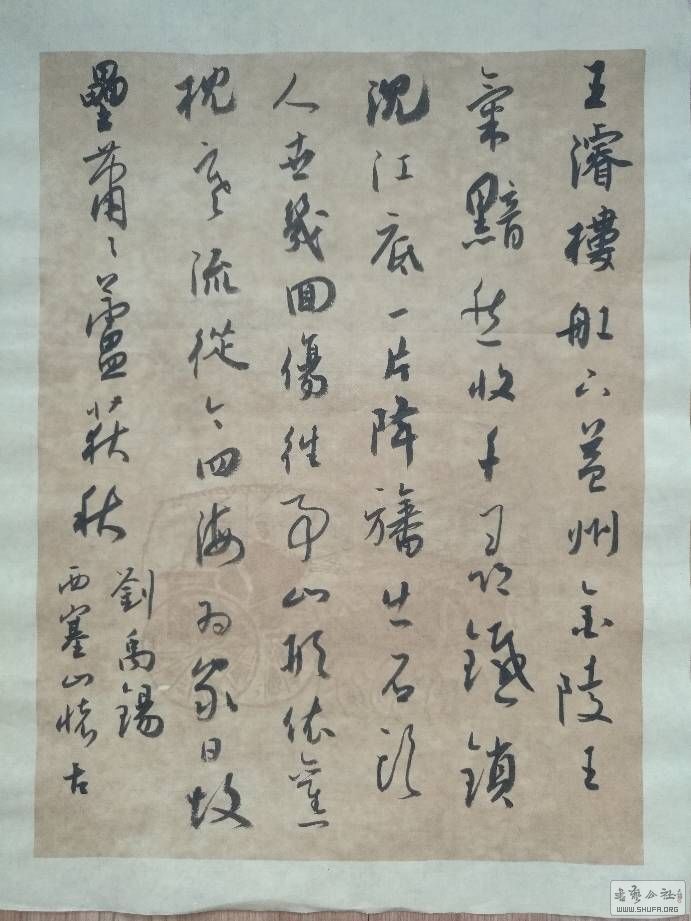 王濬樓舡下益州金陵王
氣黯然收千尋鐵鎖
沉江底一片降旛出石頭
人世幾回傷往事山形依舊
枕寒流從今四海為家日故
壘蕭〻蘆荻秋
劉禹錫
西塞山懷古
书艺公社
WWW.SHUFA.ORG